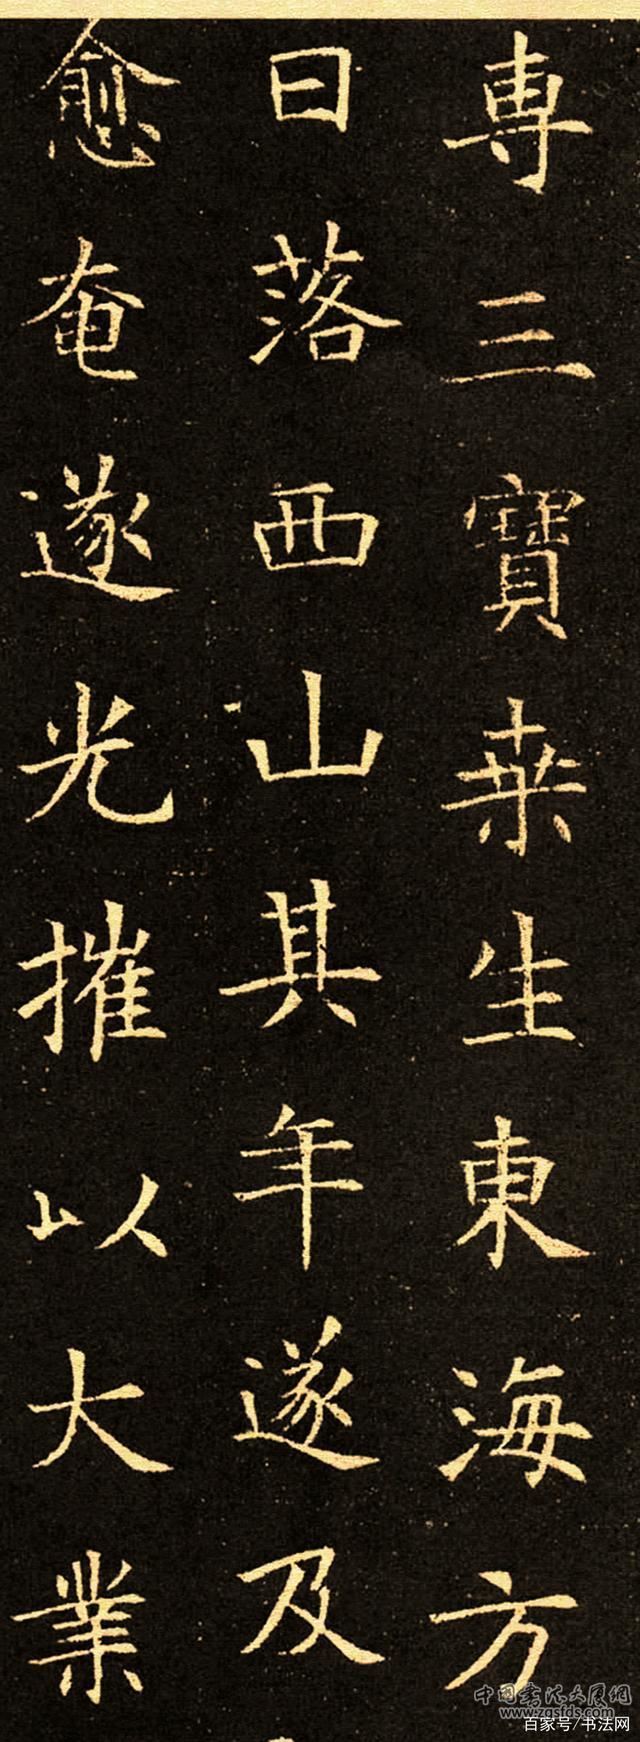 專三寶桒生東海方
曰落西山其年遂及
愈奄遂光摧以大業
中国书法大展网
www.zgsfds.com
百家号/书法网